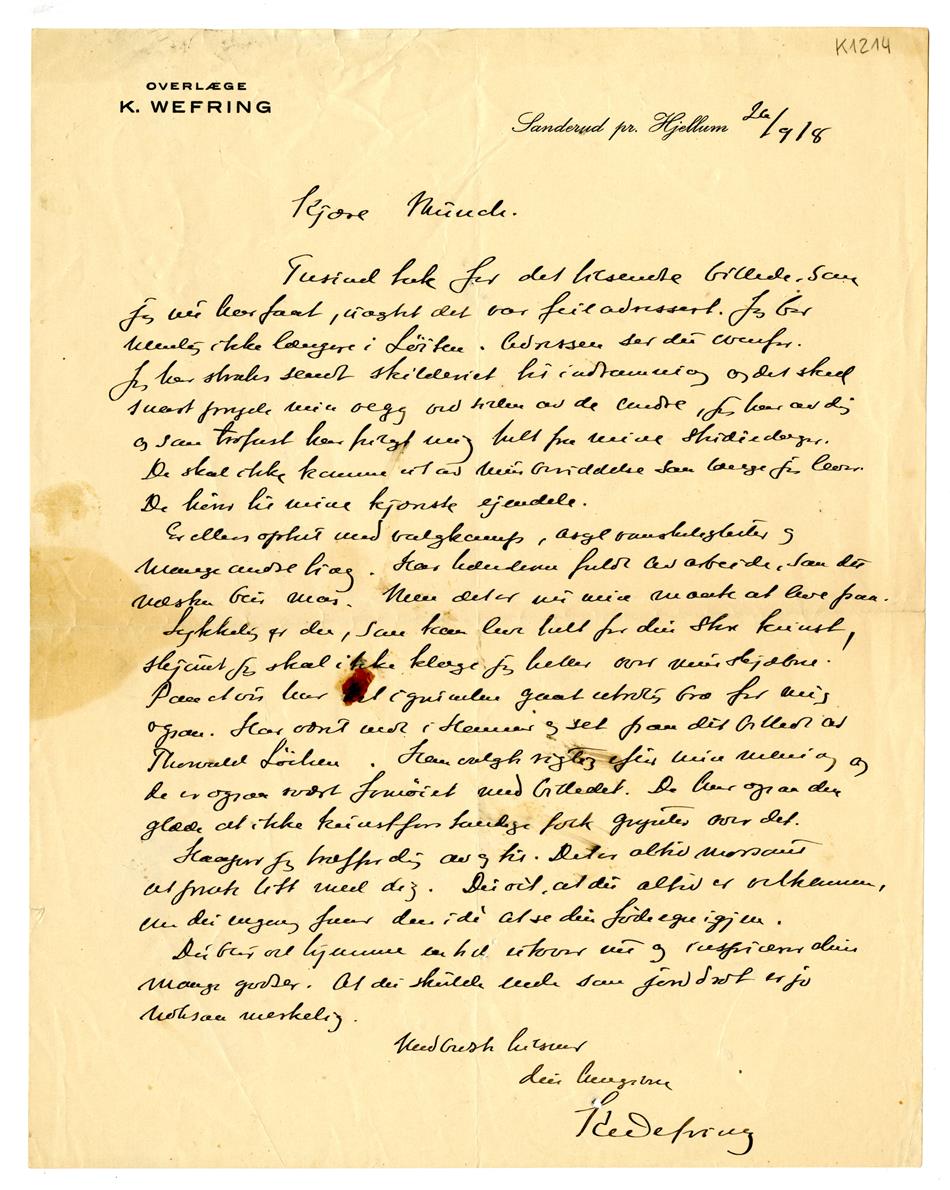 K1214
OVERLÆGE
K. WEFRING
Sanderud pr. Hjellum 20/9 18
Kjære Munch.
Tusind tak for det tilsendte billede, som
jeg nu har faat, uagtet det var feiladressert. Jeg bor
nemlig ikke længere i Løiten. Adressen ser du ovenfor.
Jeg har straks sendt skilderiet til indramning og det skal
snart pryde min vegg ved siden av de andre, jeg har av dig
og som trofast har fulgt mig helt fra mine studiedager.
De skal ikke komme ut av min besiddelse saa længe jeg lever.
De hører til mine kjæreste ejendele.
Er ellers optat med valgkamp, asylvanskeligheter og
mange andre ting. Har hænderne fuldt av arbeide, som det
næsten blir mas. Men det er nu min maate at leve paa.
Lykkelig er du, som kan leve helt for din store kunst,
skjønt jeg skal ikke klage jeg heller over min skjæbne.
Paa et vis har det i grunden gaat utrolig bra for mig
ogsaa. Har været nede i Hamar og set paa dit billede av
Thorvald Löchen. Han valgte rigtig efter min mening og
de er ogsaa svært fornøiet med billedet. De har ogsaa den
glæde at ikke kunstforstandige folk grynter over det.
Haaper jeg træffer dig av og til. Det er altid morsomt
at prate litt med dig. Du vet, at du altid er velkommen,
om du engang faar den idé at se din fødeegn igjen.
Du blir vel hjemme en tid utover nu og inspicerer dine
mange godser. At du skulde ende som jorddrot er jo
noksaa merkelig.
Med beste hilsener
din hengivne
K Wefring